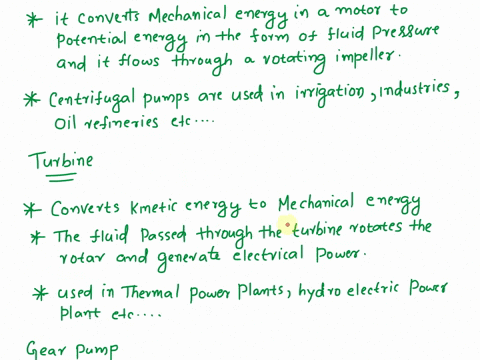 * it converts Mechanical energy in a motor to
potential energy in the form of fluid Pressure
and it flows through a rotating impeller.
* Centrifugal pumps are used in irrigation, industries,
Oil refineries etc....
Turbine
* Converts kinetic energy to Mechanical energy
* The fluid Passed through the turbine rotates the
rotar and generate electrical Power.
* used in Thermal Power Plants, hydro electric Power
Plant etc....
Gear Pump